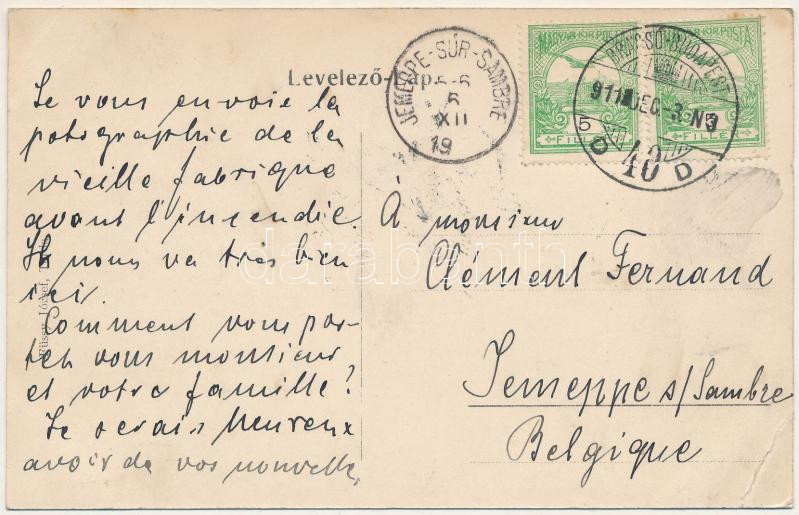 Levelező-Lap
Je vous envoie la
potographie de la
vieille fabrique
avant l'incendie.
Il nous va très bien
ici.
Comment vous por-
tez vous monsieur
et votre famille?
Je serais heureux
avoir de vos nouvelle,
À monsieur
Clément Fernand
Jemeppe s/Sambre
Belgique
JEMEPPE-SUR-SAMBRE
5-6
5
XII
19
MAGYAR KIR. POSTA
5
FILLÉR
MAGYAR KIR. POSTA
5
FILLÉR
BRASSÓ-BUDAPEST
911 DEC 3 N3
40
D
József,
darabanth